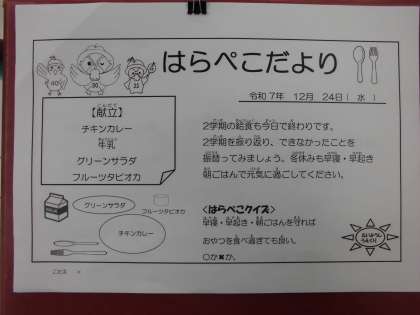 はらぺこだより
令和7年 12月 24日( 水 )
【献立】
チキンカレー
牛乳
グリーンサラダ
フルーツタピオカ
2学期の給食も今日で終わりです。
2学期を振り返り、できなかったことを
振替ってみましょう。冬休みも早寝・早起き
朝ごはんで元気に過ごしてください。
グリーンサラダ
フルーツタピオカ
チキンカレー
<はらぺこクイズ>
早寝・早起き・朝ごはんを守れば
おやつを食べ過ぎても良い。
○か✖か。